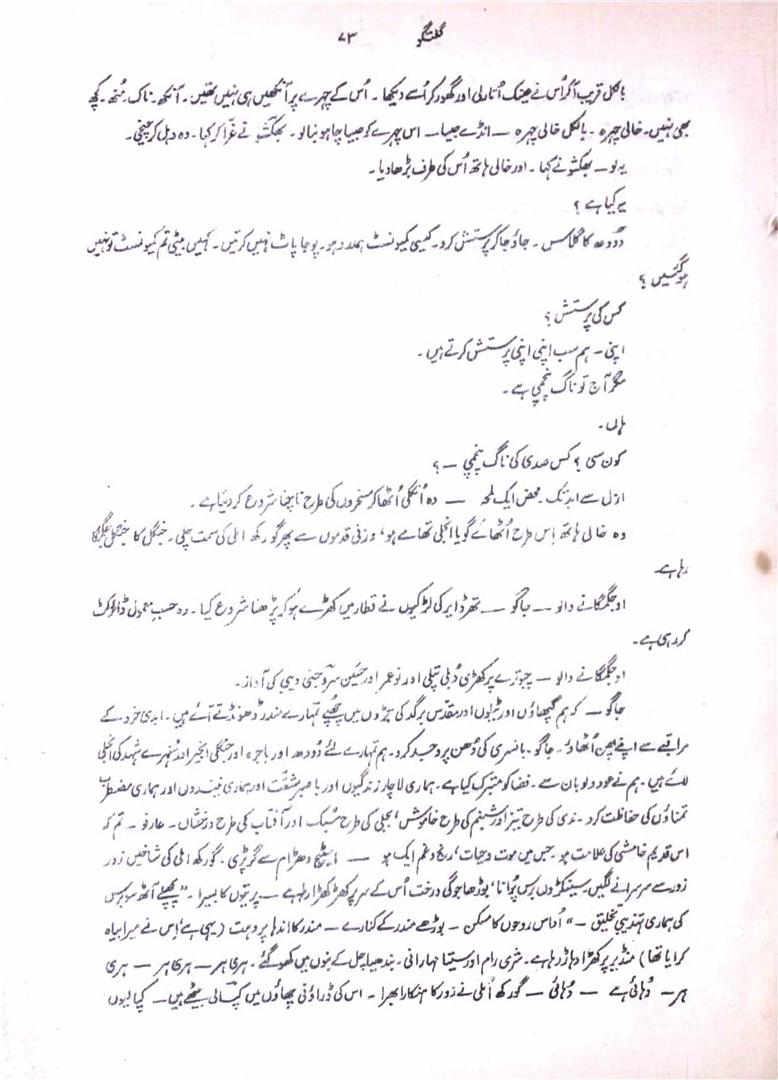 گفتگو ۷۳
بالکل قریب آکر اُس نے عینک اُتار لی اور گھور کر اُسے دیکھا۔ اُس کے چہرے پر آنکھیں ہی نہیں تھیں۔ آنکھ۔ ناک۔ مُنھ۔ کچھ
بھی نہیں۔ خالی چہرہ۔ بالکل خالی چہرہ — انڈے جیسا — اس چہرے کو جیسا چاہو بنا لو۔ بھکشو نے غرّا کر کہا۔ وہ دہل کر چیخی۔
یہ لو — بھکشو نے کہا۔ اور خالی ہاتھ اُس کی طرف بڑھا دیا۔
یہ کیا ہے ؟
دُودھ کا گلاس۔ جاؤ جاکر پرستش کرو۔ کیسی کمیونسٹ ہمدرد ہو۔ پوجا پاٹ نہیں کرتیں۔ کہیں بیٹی تم کمیونسٹ تو نہیں
ہو گئیں ؟
کس کی پرستش ؟
اپنی — ہم سب اپنی اپنی پرستش کرتے ہیں۔
مگر آج تو ناگ پنچمی ہے۔
ہاں۔
کون سی ؟ کس صدی کی ناگ پنچمی — ؟
ازل سے ابد تک۔ محض ایک لمحہ — وہ اُنگلی اُٹھا کر مسخروں کی طرح ناچنا شروع کر دیتا ہے۔
وہ خالی ہاتھ اِس طرح اُٹھائے گویا انجلی تھامے ہو، وزنی قدموں سے پھر گورکھ املی کی سمت چلی۔ جنگل کا جنگل جگمگا
رہا ہے۔
او جگمگانے والو — جاگو — تھرڈ ایر کی لڑکیوں نے قطار میں کھڑے ہو کر پڑھنا شروع کیا۔ وہ حسبِ معمول ڈائرکٹ
کر رہی ہے۔
او جگمگانے والو — چبوترے پر کھڑی دُبلی پتلی اور نو عمر اور حسین سروجنی دیبی کی آواز۔
جاگو — کہ ہم گپھاؤں اور ٹیلوں اور مقدس برگد کی جڑوں میں چھپے تمہارے مندر ڈھونڈتے آئے ہیں۔ ابدی خرد کے
مراقبے سے اپنے پھن اُٹھاؤ۔ جاگو۔ بانسری کی دُھن پر وجد کرو۔ ہم تمہارے لئے دُودھ اور باجرہ اور جنگلی انجیر اور سُنہرے شہد کی انجلی
لائے ہیں۔ ہم نے عود و لوبان سے۔ فضا کو متبرک کیا ہے۔ ہماری لاچار زندگیوں اور با صبر مشقّت اور ہماری نیندوں اور ہماری مضطرب
تمناؤں کی حفاظت کرو۔ ندی کی طرح تیز اور شبنم کی طرح خاموش، بجلی کی طرح سُبک اور آفتاب کی طرح درخشاں۔ عارفو۔ تم کہ
اس قدیم خامشی کی علامت ہو۔ جس میں موت و حیات، رنج و غم ایک ہو — اسٹیج دھڑام سے گر پڑی۔ گورکھ املی کی شاخیں زور
زور سے سرسرانے لگیں۔ سینکڑوں برس پُرانا، بوڑھا جوگی درخت اُس کے سر پر کھڑکھڑا رہا ہے — پریتوں کا بسیرا۔ ”پچھلے آٹھ سو برس
کی ہماری تہذیبی تخلیق — “ اُداس روحوں کا مسکن۔ بوڑھے مندر کے کنارے — مندر کا اندھا پروہت (یہی ہے، اِس نے میرا بیاہ
کرایا تھا) منڈیر پر کھڑا دہاڑ رہا ہے۔ شری رام اور سیتا مہارانی۔ بندھیاچل کے بنوں میں کھو گئے۔ ہری ہر — ہری ہر — ہری
ہر — دُہائی ہے — دُہائی — گورکھ اُملی نے زور کا ہنکارا بھرا۔ اس کی ڈراؤنی چھاؤں میں کپالی بیٹھے ہیں — کپالیوں